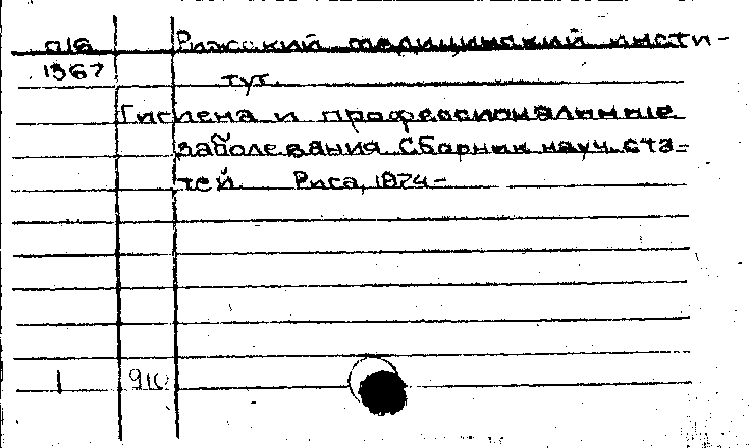 016 Рижский медицинский инсти-
1367 тут.
Гигиена и профессиональные
заболевания. Сборник науч. ста-
тей. Рига, 1974-
1 910